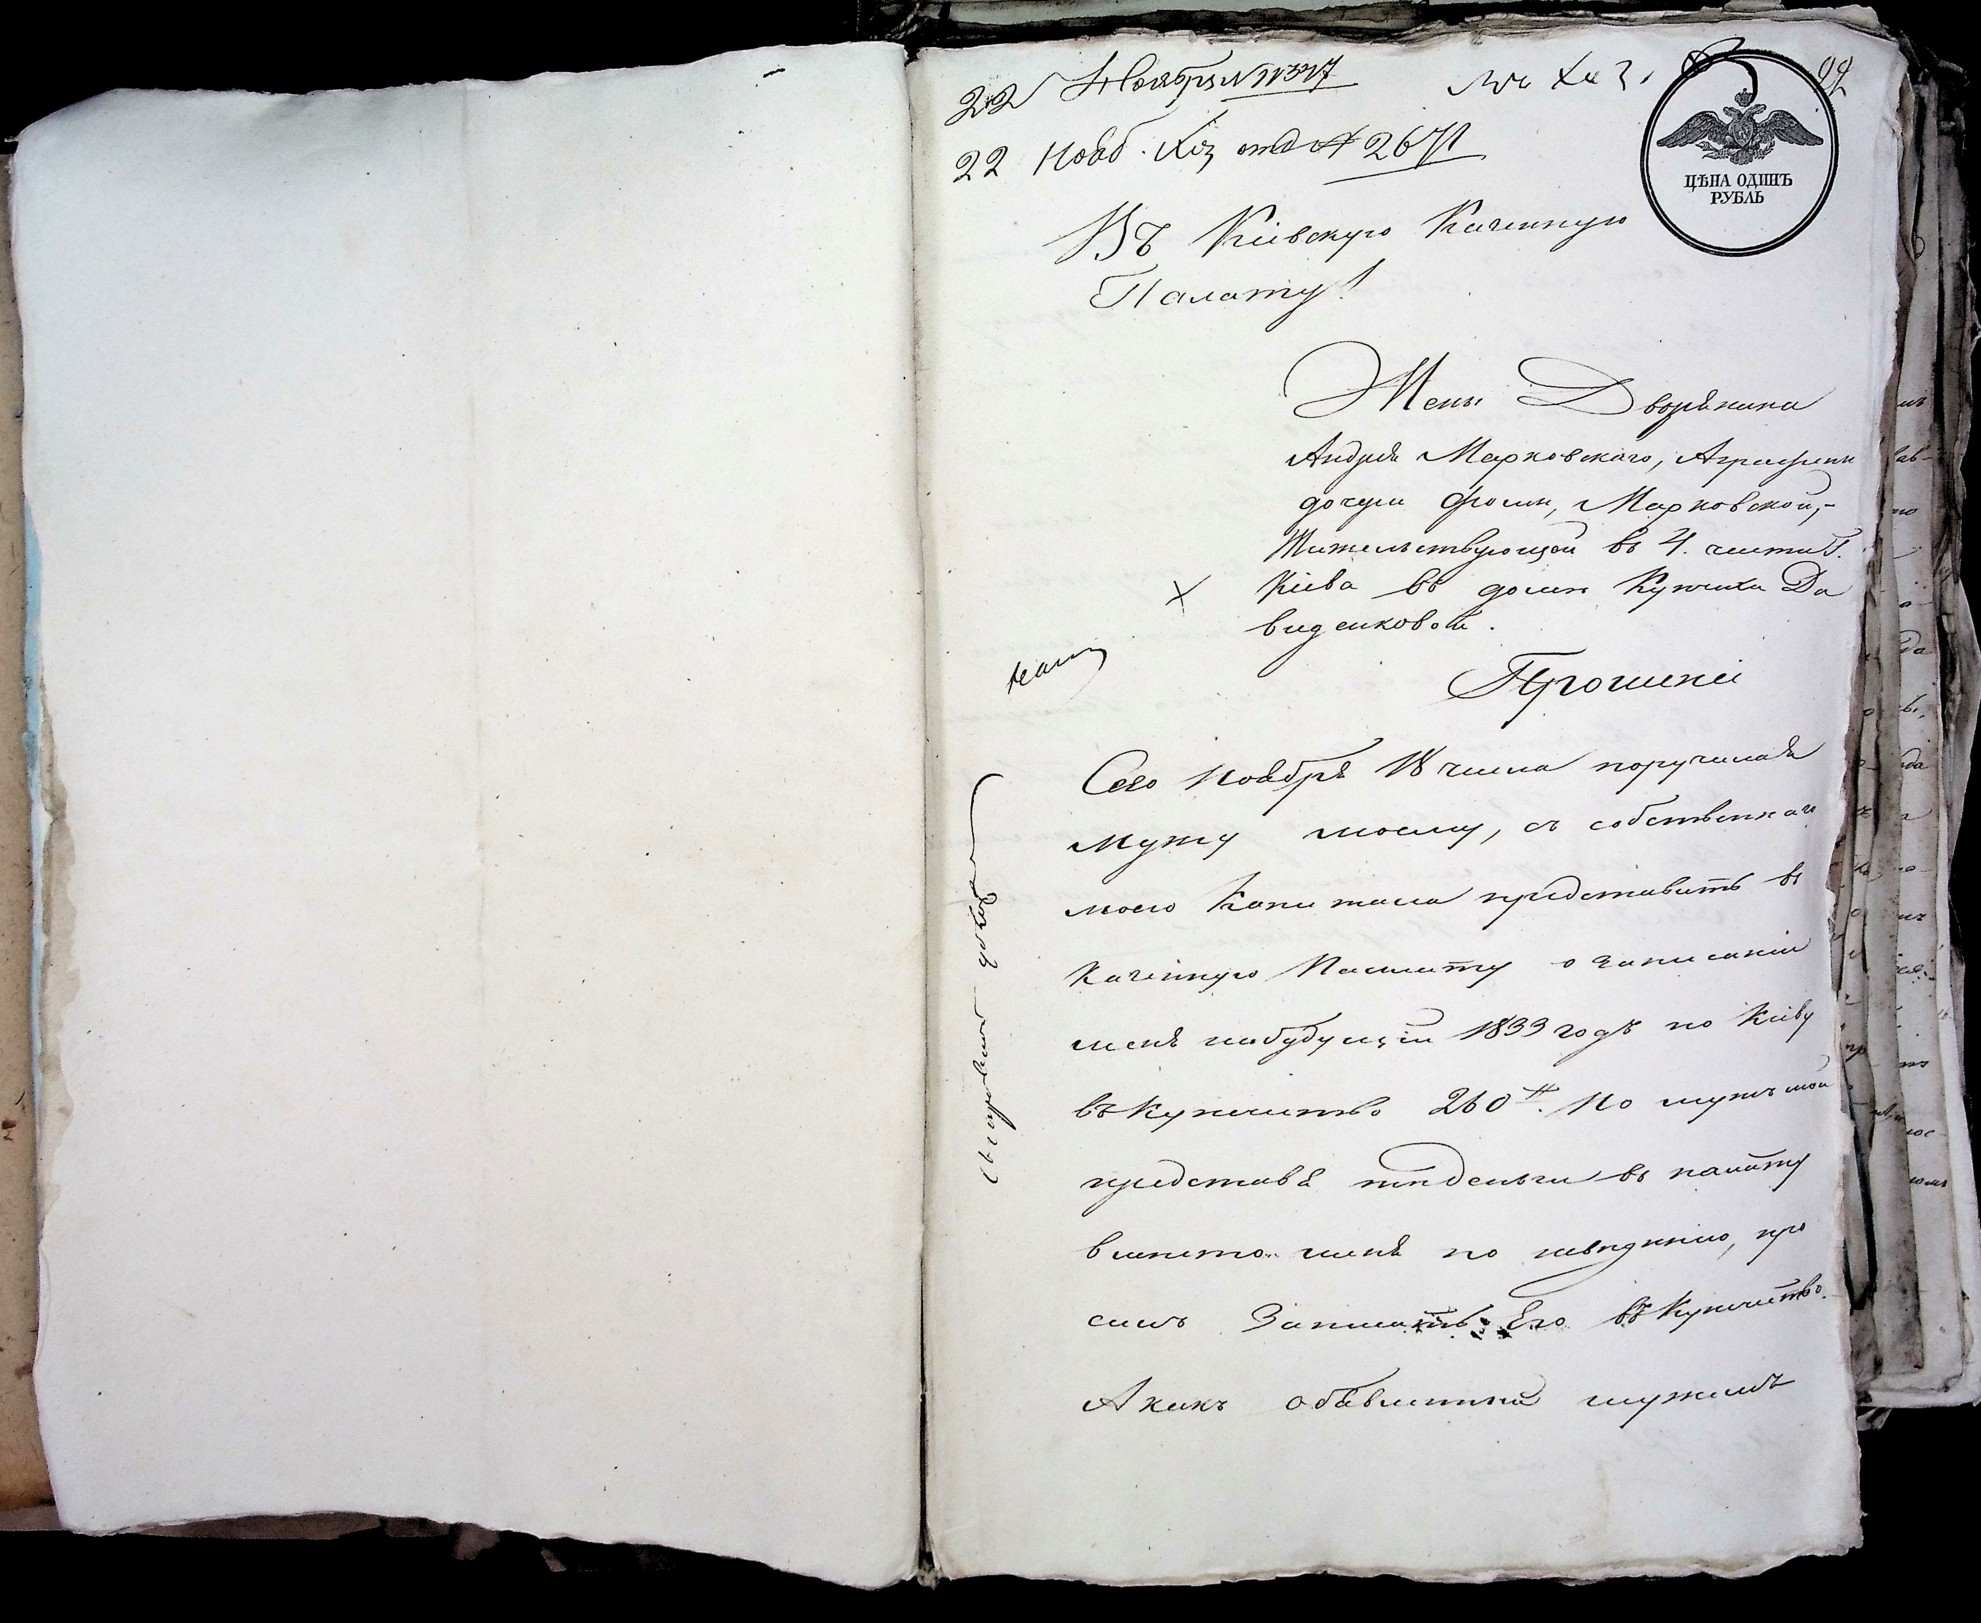 22 Ноября № 11347
22 Нояб. Хоз отд № 2671
92
ЦѢНА ОДИНЪ
РУБЛЬ
Въ Кіевскую Казенную
Палату!
Жены Дворянина
Андрея Марковскаго, Аграфены
дочери Фомы, Марковской,-
Жительствующей въ 4. части Г.
Кіева въ доме Купчихи Да
виденковой.
Прошеніе
Сего Ноября 18 числа поручила я
мужу моему, съ собственнаго
моего Капитала представить въ
Казенную Палату о записаніи
меня на будущій 1833 годъ по Кіеву
въ Купечество 260 Но мужъ мой
представя те деньги въ палату
вместо меня по неведенію, про
силъ Записать Его въ Купечество.
А какъ объявленный мужемъ